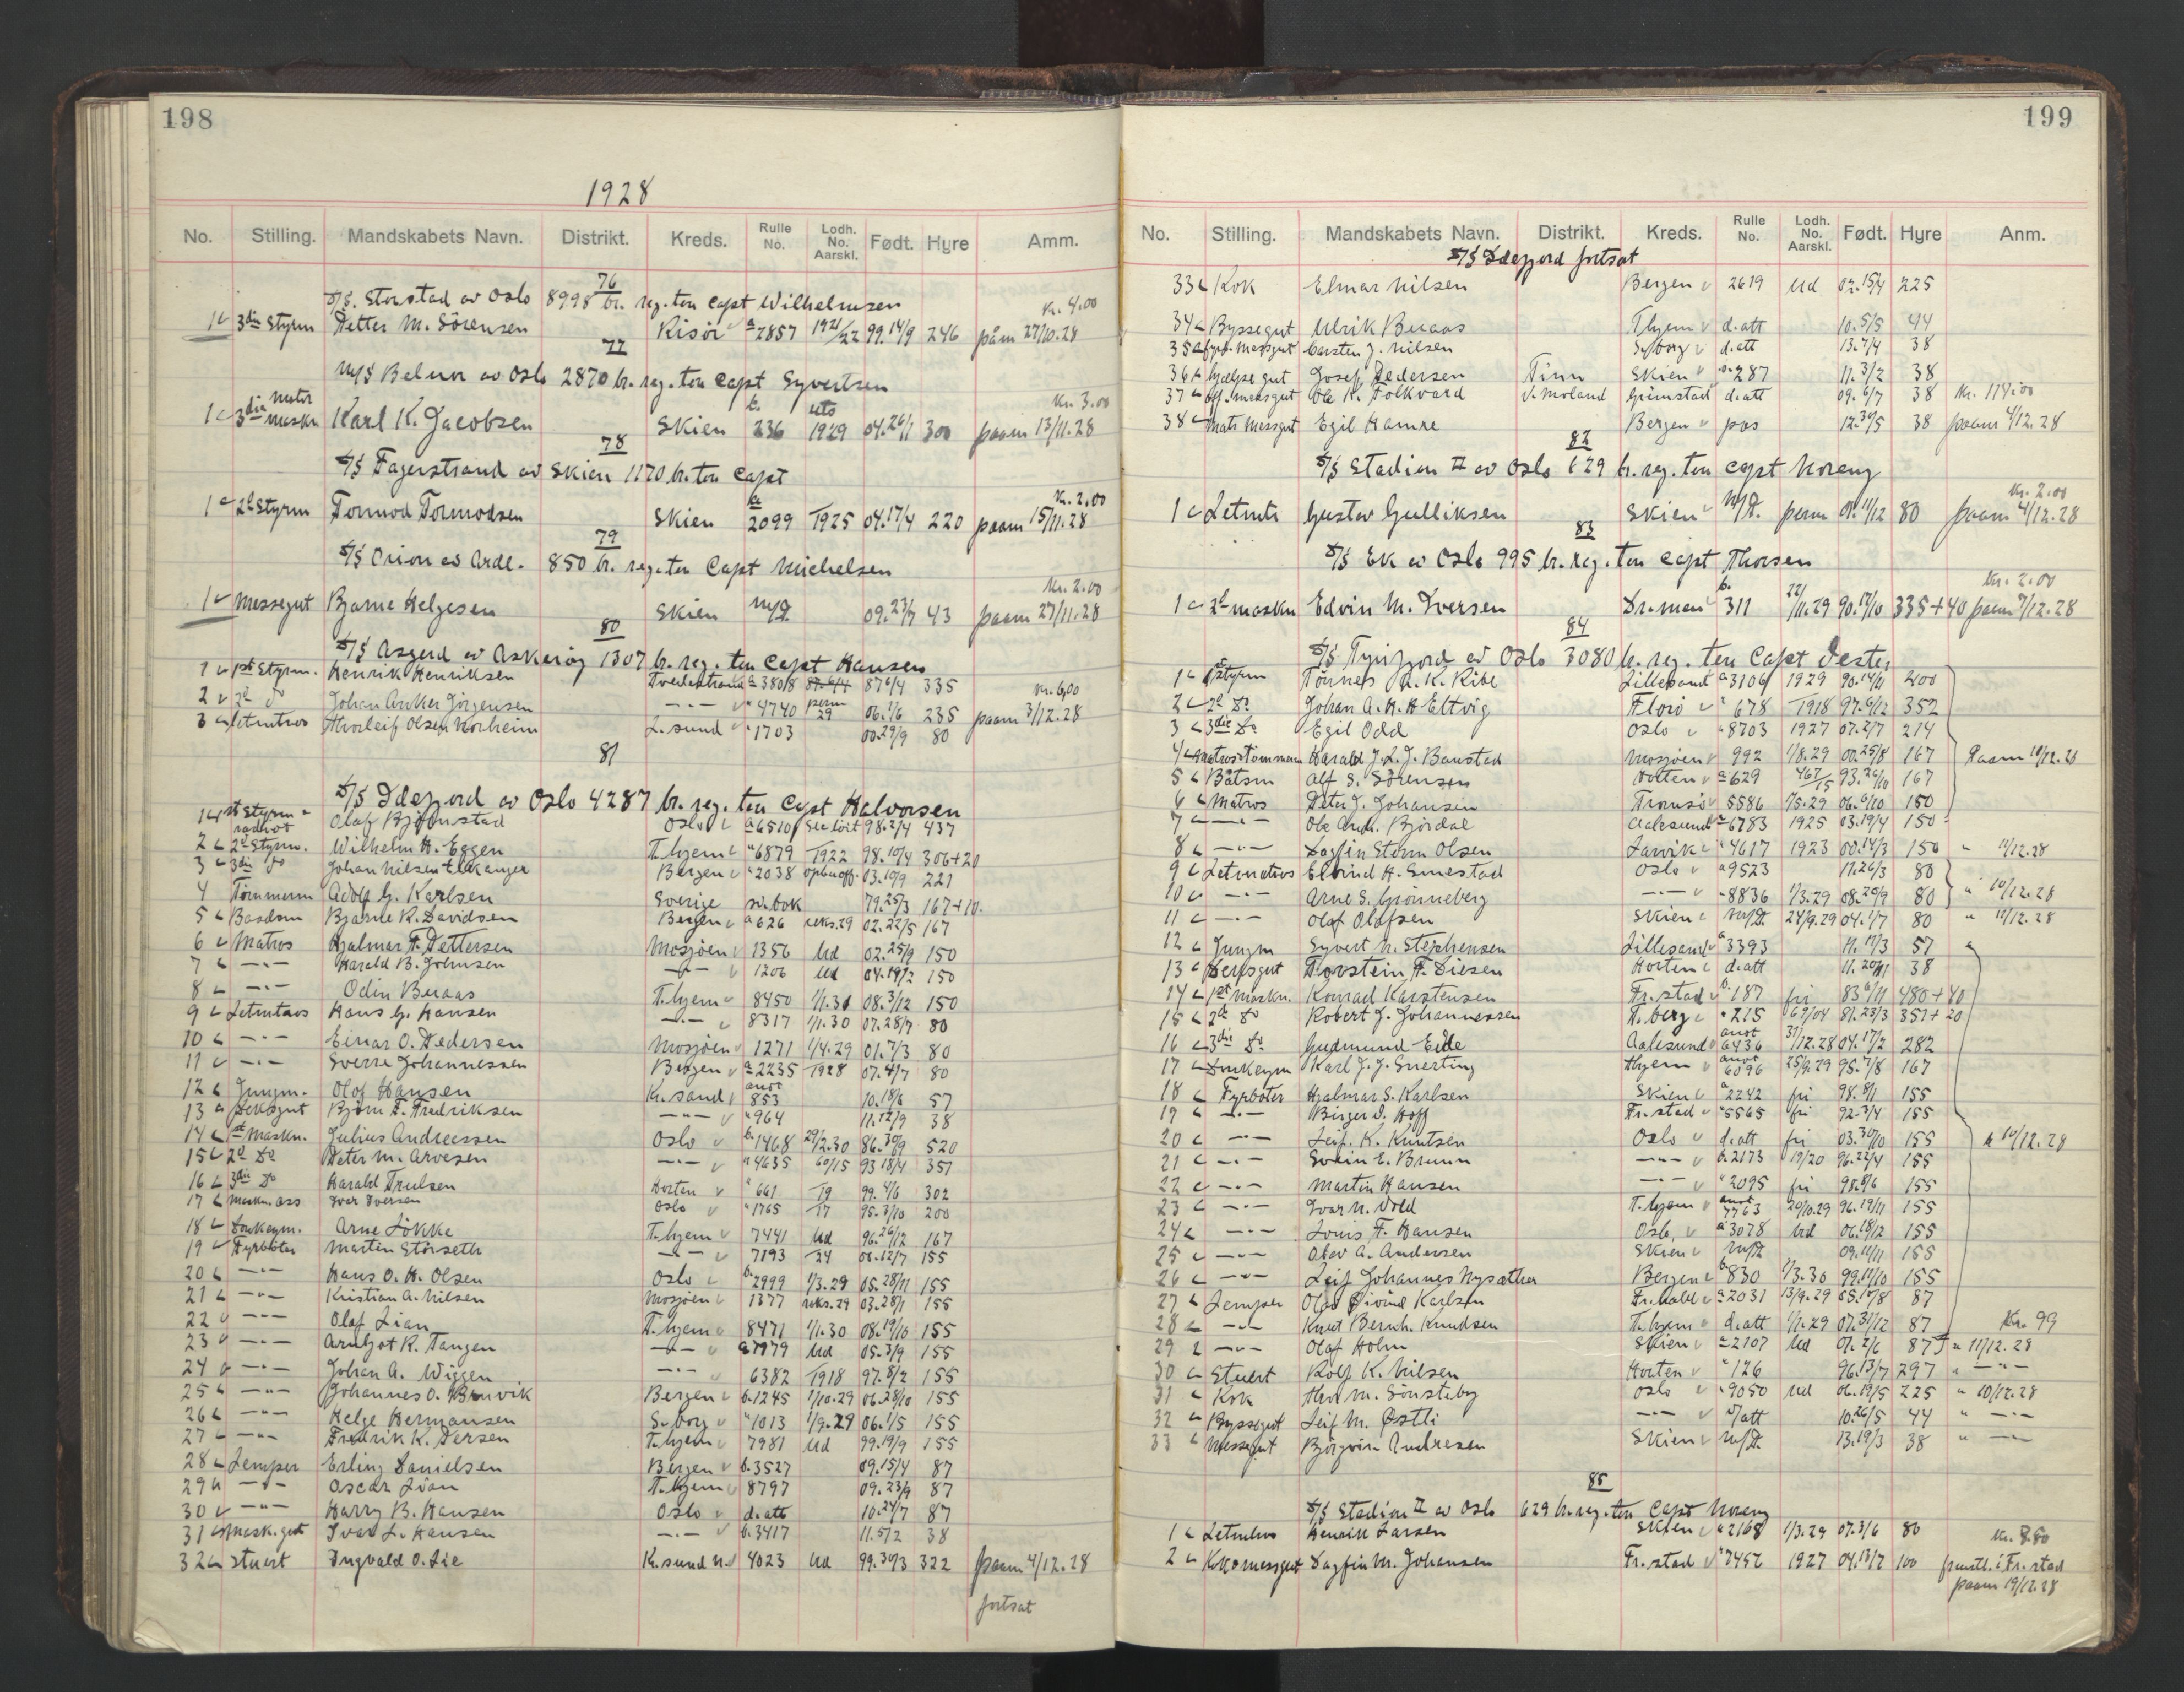 198
1928
No. Stilling. Mandskabets Navn. Distrikt. Kreds. Rulle No. Lodh. No. Aarskl. Født. Hyre Amm.
76
S/S. Storstad av Oslo 8998 br. reg. ton Capt Wilhelmsen
Kr. 4.00
1 3die Styrm Petter M. Sörensen Risör a 2857 1921/22 99.14/9 246 påm 27/10.28
77
M/S Belnor av Oslo 2870 br. reg. ton Capt Syvertsen
Kr. 3.00
1 3die motor maskn Karl K. Jacobsen Skien b. 236 uts 1929 04.26/1 300 paam 13/11.28
78
S/S Fagerstrand av Skien 1170 br. ton Capt
Kr. 2.00
1 2d Styrm Tormod Tormodsen Skien a 2099 1925 04.17/4 220 paam 15/11.28
79
S/S Orion av Ardl. 850 br. reg. ton Capt Michelsen
Kr. 2.00
1 Messegut Bjarne Helgesen Skien m/P. 09.23/7 43 paam 27/11.28
80
S/S Asgerd av Askeröy 1307 br. reg. ton Capt Hansen
1 1st Styrm. Henrik Henriksen Tvedestrand a 3808 87.6/4 87 6/4 335
2 2d do Johan Anker Jörgensen —"— " 4740 perm 29 06.1/6 235 Kr. 6,00
3 Letmtros Thorleif Olsen Norheim L.sund " 1703 00.29/9 80 paam 3/12.28
81
S/S Idefjord av Oslo 4287 br. reg. ton Capt Halvorsen
1 1st Styrm radiot Olaf Björnstad Oslo a 6510 98.2/4 437
2 2d Styrm. Wilhelm H. Eggen T.hjem " 6879 1922 98.10/4 306+20
3 3die do Johan Nilsen Bergen " 2038 03.10/9 221
4 Tömmerm Adolf G. Karlsen Sverige sv. bok 79.25/3 167+10.
5 Baadsm Bjarne R. Davidsen Bergen a 626 seks.29 02.22/5 167
6 Matros Hjalmar F. Pettersen Mosjöen 1356 Ud 02.25/9 150
7 —"— Harald B. Johnsen —"— 1206 Ud 04.19/2 150
8 —"— Odin Buaas T.hjem 8450 1/1.30 08.3/12 150
9 Letmtros Hans G. Hansen —"— 8317 1/1.30 07.28/7 80
10 —"— Einar O. Pedersen Mosjöen 1271 1/4.29 01.7/3 80
11 —"— Sverre Johannessen Bergen a 2235 1928 07.4/7 80
12 Jungm. Olaf Hansen K.sand anot 853 10.18/6 57
13 Deksgut Björn F. Fredriksen —"— " 964 11.12/9 38
14 1st Maskn. Julius Andreessen Oslo b. 1468 29/2.30 86.30/9 520
15 2d Do Peter M. Arvesen —"— " 4635 60/15 93 18/4 357
16 3die Do Harald Trulsen Horten " 661 19 99.4/6 302
17 Maskn. ass Ivar Iversen Oslo " 1765 17 95.3/10 200
18 Donkeym. Arne Lökke T.hjem 7441 Ud 96.26/12 167
19 Fyrböter Martin Störseth —"— 7193 24 06.12/7 155
20 —"— Hans O. H. Olsen Oslo b. 2999 1/3.29 05.28/11 155
21 —"— Kristian A. Nilsen Mosjöen 1377 seks.29 03.28/1 155
22 —"— Olaf Lian T.hjem 8471 1/1.30 08.19/10 155
23 —"— Arnljot R. Tangen —"— a 7979 Ud 05.3/9 155
24 —"— Johan A. Wiggen —"— 6382 1918 97.8/2 155
25 —"— Johannes O. Bruvik Bergen b. 1245 1/10.29 06.28/10 155
26 —"— Helge Hermansen S.borg " 1013 1/9.29 06.1/5 155
27 —"— Fredrik K. Persen T.hjem 7981 Ud 99.19/9 155
28 Lemper Erling Danielsen Bergen b. 3527 09.15/4 87
29 —"— Oscar Lian T.hjem 8797 09.23/9 87
30 —"— Harry B. Hansen Oslo d. att 10.24/7 87
31 Mask. gut Ivar L. Hansen —"— b. 3417 11.5/2 38
32 Stuert Ingvald O. Lie K.sund N. 4023 Ud 99.30/3 322 paam 4/12.28
fortsat
199
No. Stilling. Mandskabets Navn. Distrikt. Kreds. Rulle No. Lodh. No. Aarskl. Født. Hyre Anm.
S/S Idefjord fortsat
33 Kok Elmar Nilsen Bergen 2619 Ud 02.15/4 225
34 Byssegut Ulrik Buaas T.hjem d. att 10.5/5 44
35 fyrb. Messgut Carsten J. Nilsen S.borg d. att 13.7/4 38
36 hjælpe gut Josef Pedersen Tinn Skien 287 11.3/2 38
37 off. messgut Ole K. Folkvord V. Moland Grimstad d. att 09.6/7 38 Kr. 114.00
38 Mats Messgut Egil Hamre Bergen pas 12.30/5 38 paam 4/12.28
82
S/S Stadion II av Oslo 629 br. reg. ton Capt Noreng
Kr. 2.00
1 Letmtr Gustav Gulliksen Skien m/P. perm 01.11/12 80 paam 4/12.28
83
S/S Ek av Oslo 995 br. reg. ton Capt Thorsen
Kr. 2.00
1 2d maskn Edvin M. Iversen Dr.men b. 311 22/11.29 90.17/10 335+40 paam 7/12.28
84
S/S Tyrifjord av Oslo 3080 br. reg. ton Capt Vester
1 1st styrm Tönnes A. K. Ribe Lillesand a 3106 1929 90.14/11 400
2 2d Do Johan A. H. H Eltvig Florö " 678 1918 97.6/12 352
3 3die Do Egil Odd Oslo " 8703 1927 07.2/7 214
4 Matros Tömmerm Harald J. L. J. Baustad Mosjöen 992 1/8.29 00.25/8 167 Paam 10/12.28
5 Båtsm Alf S. Sörensen Horten a 629 467/15 93.26/10 167
6 Matros Peter J. Johansen Tromsö 5586 1/5.29 06.6/10 150
7 —"— Ole Andr. Björdal Aalesund a 6783 1925 03.19/4 150
8 —"— Dagfin Storm Olsen Larvik " 4617 1923 00.14/3 150 " 11/12.28
9 Letmatros Eivind H. Smestad Oslo a 9523 11.26/3 80
10 —"— Arne S. Grönneberg —"— " 8836 1/3.29 08.20/9 80 " 10/12.28
11 —"— Olaf Olafsen Skien m/P. 24/9.29 04.1/7 80 " 12/12.28
12 Jungm Syvert N. Stephensen Lillesand a 3393 11.17/3 57
13 Deksgut Torstein F. Diesen Horten d. att 11.20/11 38
14 1st Maskn. Konrad Karstensen Fr.stad b. 187 fri 83 6/11 480+40
15 2de Do Robert J. Johannessen T.berg " 215 67/04 81.23/3 357+20
16 3die Do Gudmund Eide Aalesund anot 6436 31/12.28 04.17/2 282
17 Donkeym Karl J. J. Snerting T.hjem anot 6096 25/9.29 95.7/8 167
18 Fyrböter Hjalmar S. Karlsen Skien a 2242 fri 98.8/1 155
19 —"— Birger D. Hoff Fr.stad " 5565 fri 92.3/4 155
20 —"— Leif. K. Knutsen Oslo d. att fri 03.30/10 155 " 10/12.28
21 —"— Svein E. Bruun —"— b. 2173 19/20 96.22/4 155
22 —"— Martin Hansen —"— " 2095 fri 98.8/6 155
23 —"— Ivar N. Vold T.hjem anot 7763 20/10.29 96.19/11 155
24 —"— Louis F. Hansen Oslo, a 3078 Ud 06.18/12 155
25 —"— Olav A. Andersen Skien m/P. 09.11/11 155
26 —"— Leif Johannes Nysæther Bergen b. 830 1/3.30 99.19/10 155
27 Lemper Olav Öivind Karlsen Fr.hald a 2031 13/9.29 05.17/8 87
28 —"— Knut Bernh. Knudsen T.hjem d. att 1/1.29 07.31/12 87 Kr. 99
29 —"— Olaf Holm Skien a 2107 Ud 07.2/6 87 " 11/12.28
30 Stuert Rolf K. Nilsen Horten " 126 96.13/7 297 " —"—
31 Kok Thr. M. Sönsteby Oslo " 9050 Ud 06.19/5 225 " 10/12.28
32 Byssegut Leif M. Östli —"— d/att 10.26/5 44 " —"—
33 Messegut Björgvin Andresen Skien m/P. 13.19/3 38 " —"—
85
S/S Stadion II av Oslo 629 br. reg. ton Capt Noreng
1 Letmtros Henrik Larsen Skien a 2168 1/3.29 07.3/6 80 Kr. 8.80
2 Kokomessgut Dagfin M. Johansen Fr.stad " 7456 1927 04.13/7 100 i Fr.stad
paam 19/12.28